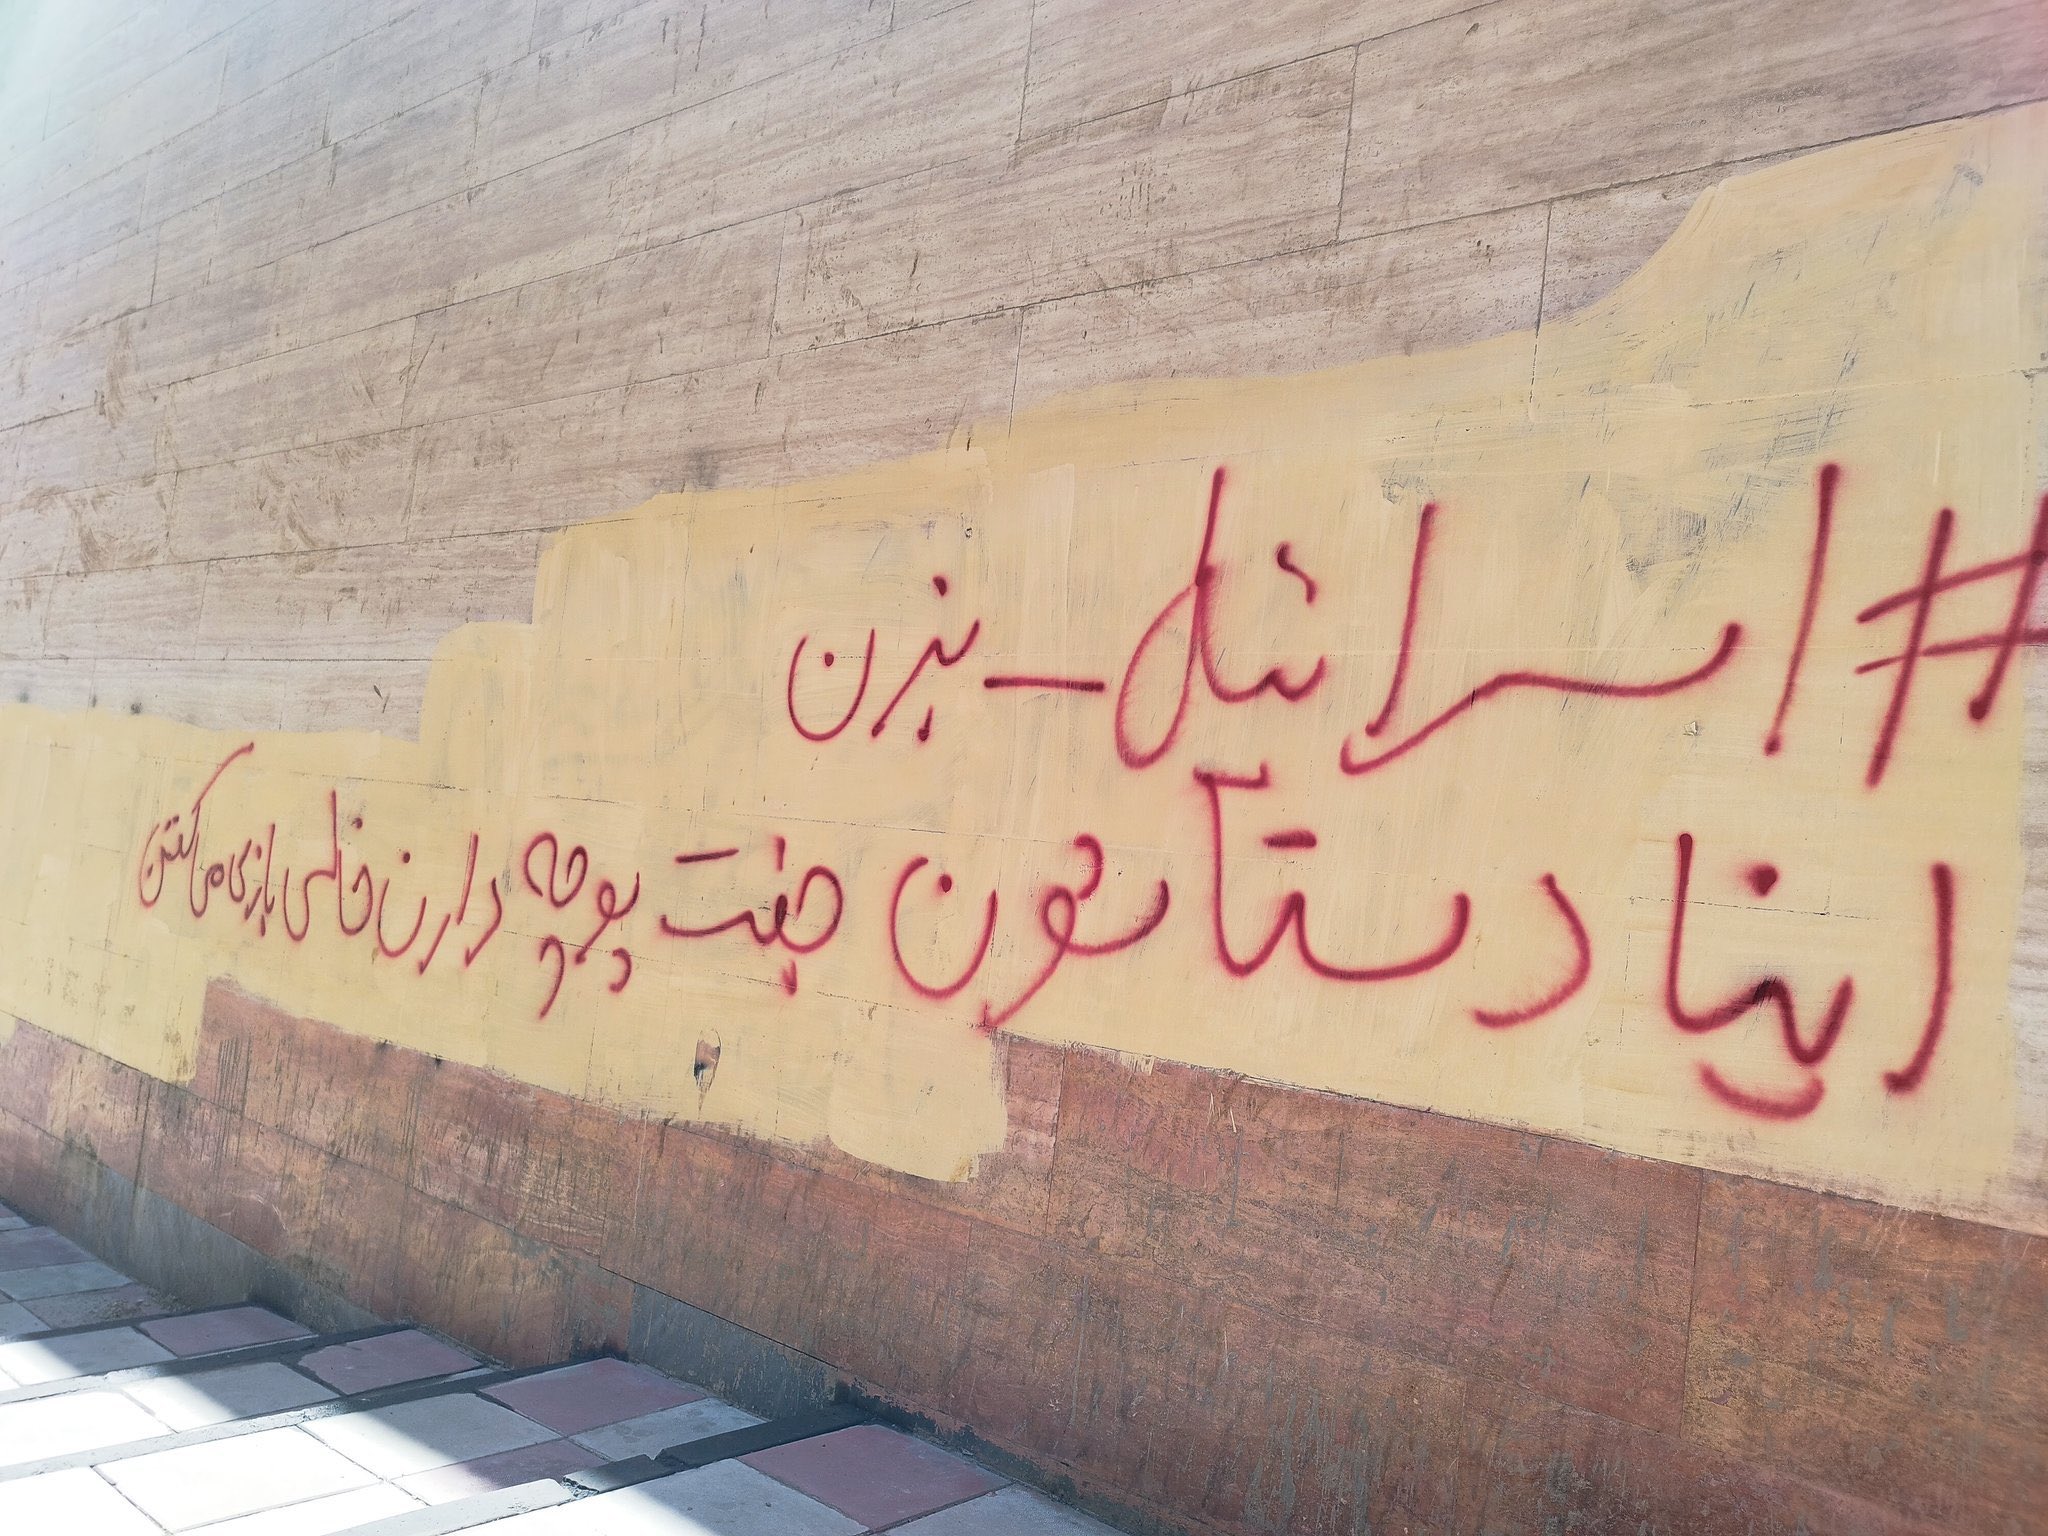 #اسرائیل_بزن
اینا دستاتون جفت پوچه دارن خالی بازی میکنن